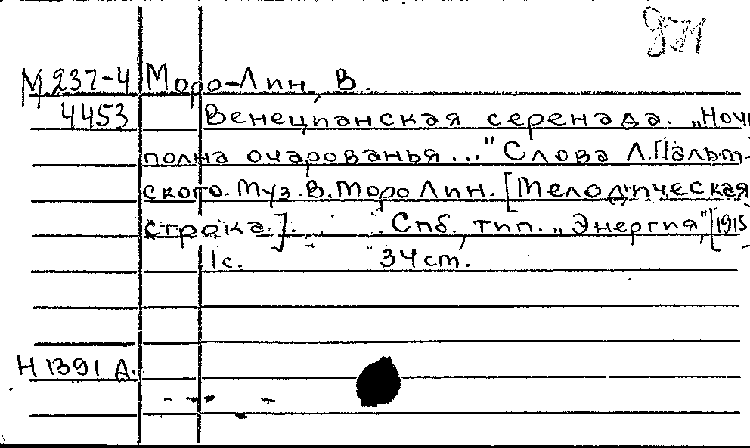 М 237-4 Моро-Лин, В.
4453 Венецианская серенада. „Ночь
полна очарованья..." Слова Л. Пальм-
ского. Муз. В. Моро Лин. [Мелодическая
строка.]. Спб, тип. „Энергия", [1915
1 с. 34 см.
Н 1391 А.